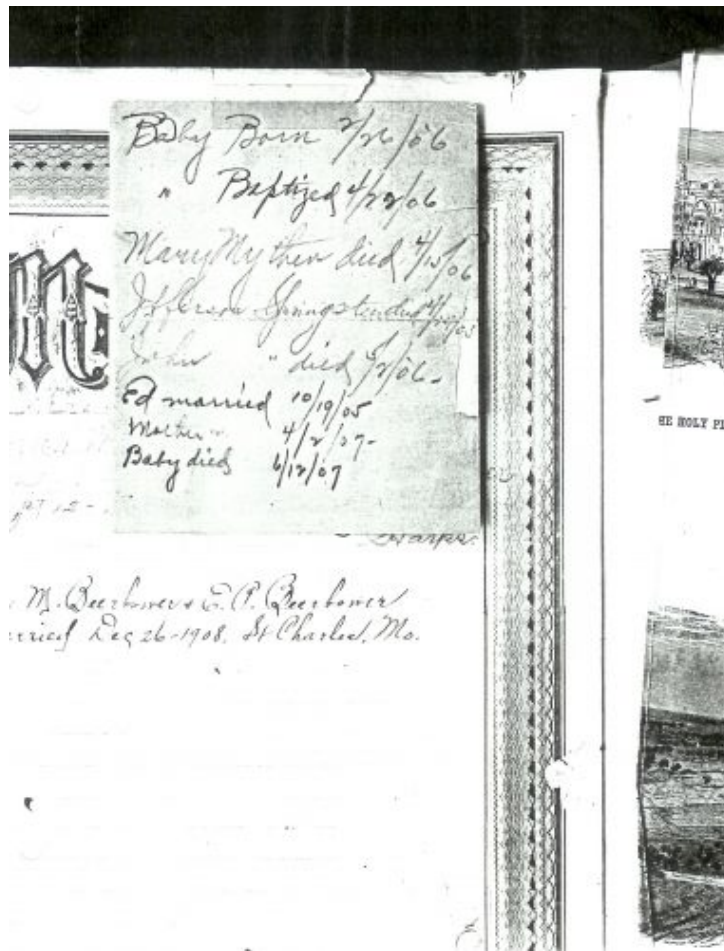 Baby Born 2/26/06
" Baptized 4/22/06
Mary My then died 4/15/06
Jefferson Livingston died
John " died 9/2/06-
Ed married 10/19/05
Mother " 4/2/07-
Baby died 6/12/07
M
HE HOLY PL
M. Beerbower & E. P. Beerbower
rried Dec 26-1908. St Charles, Mo.